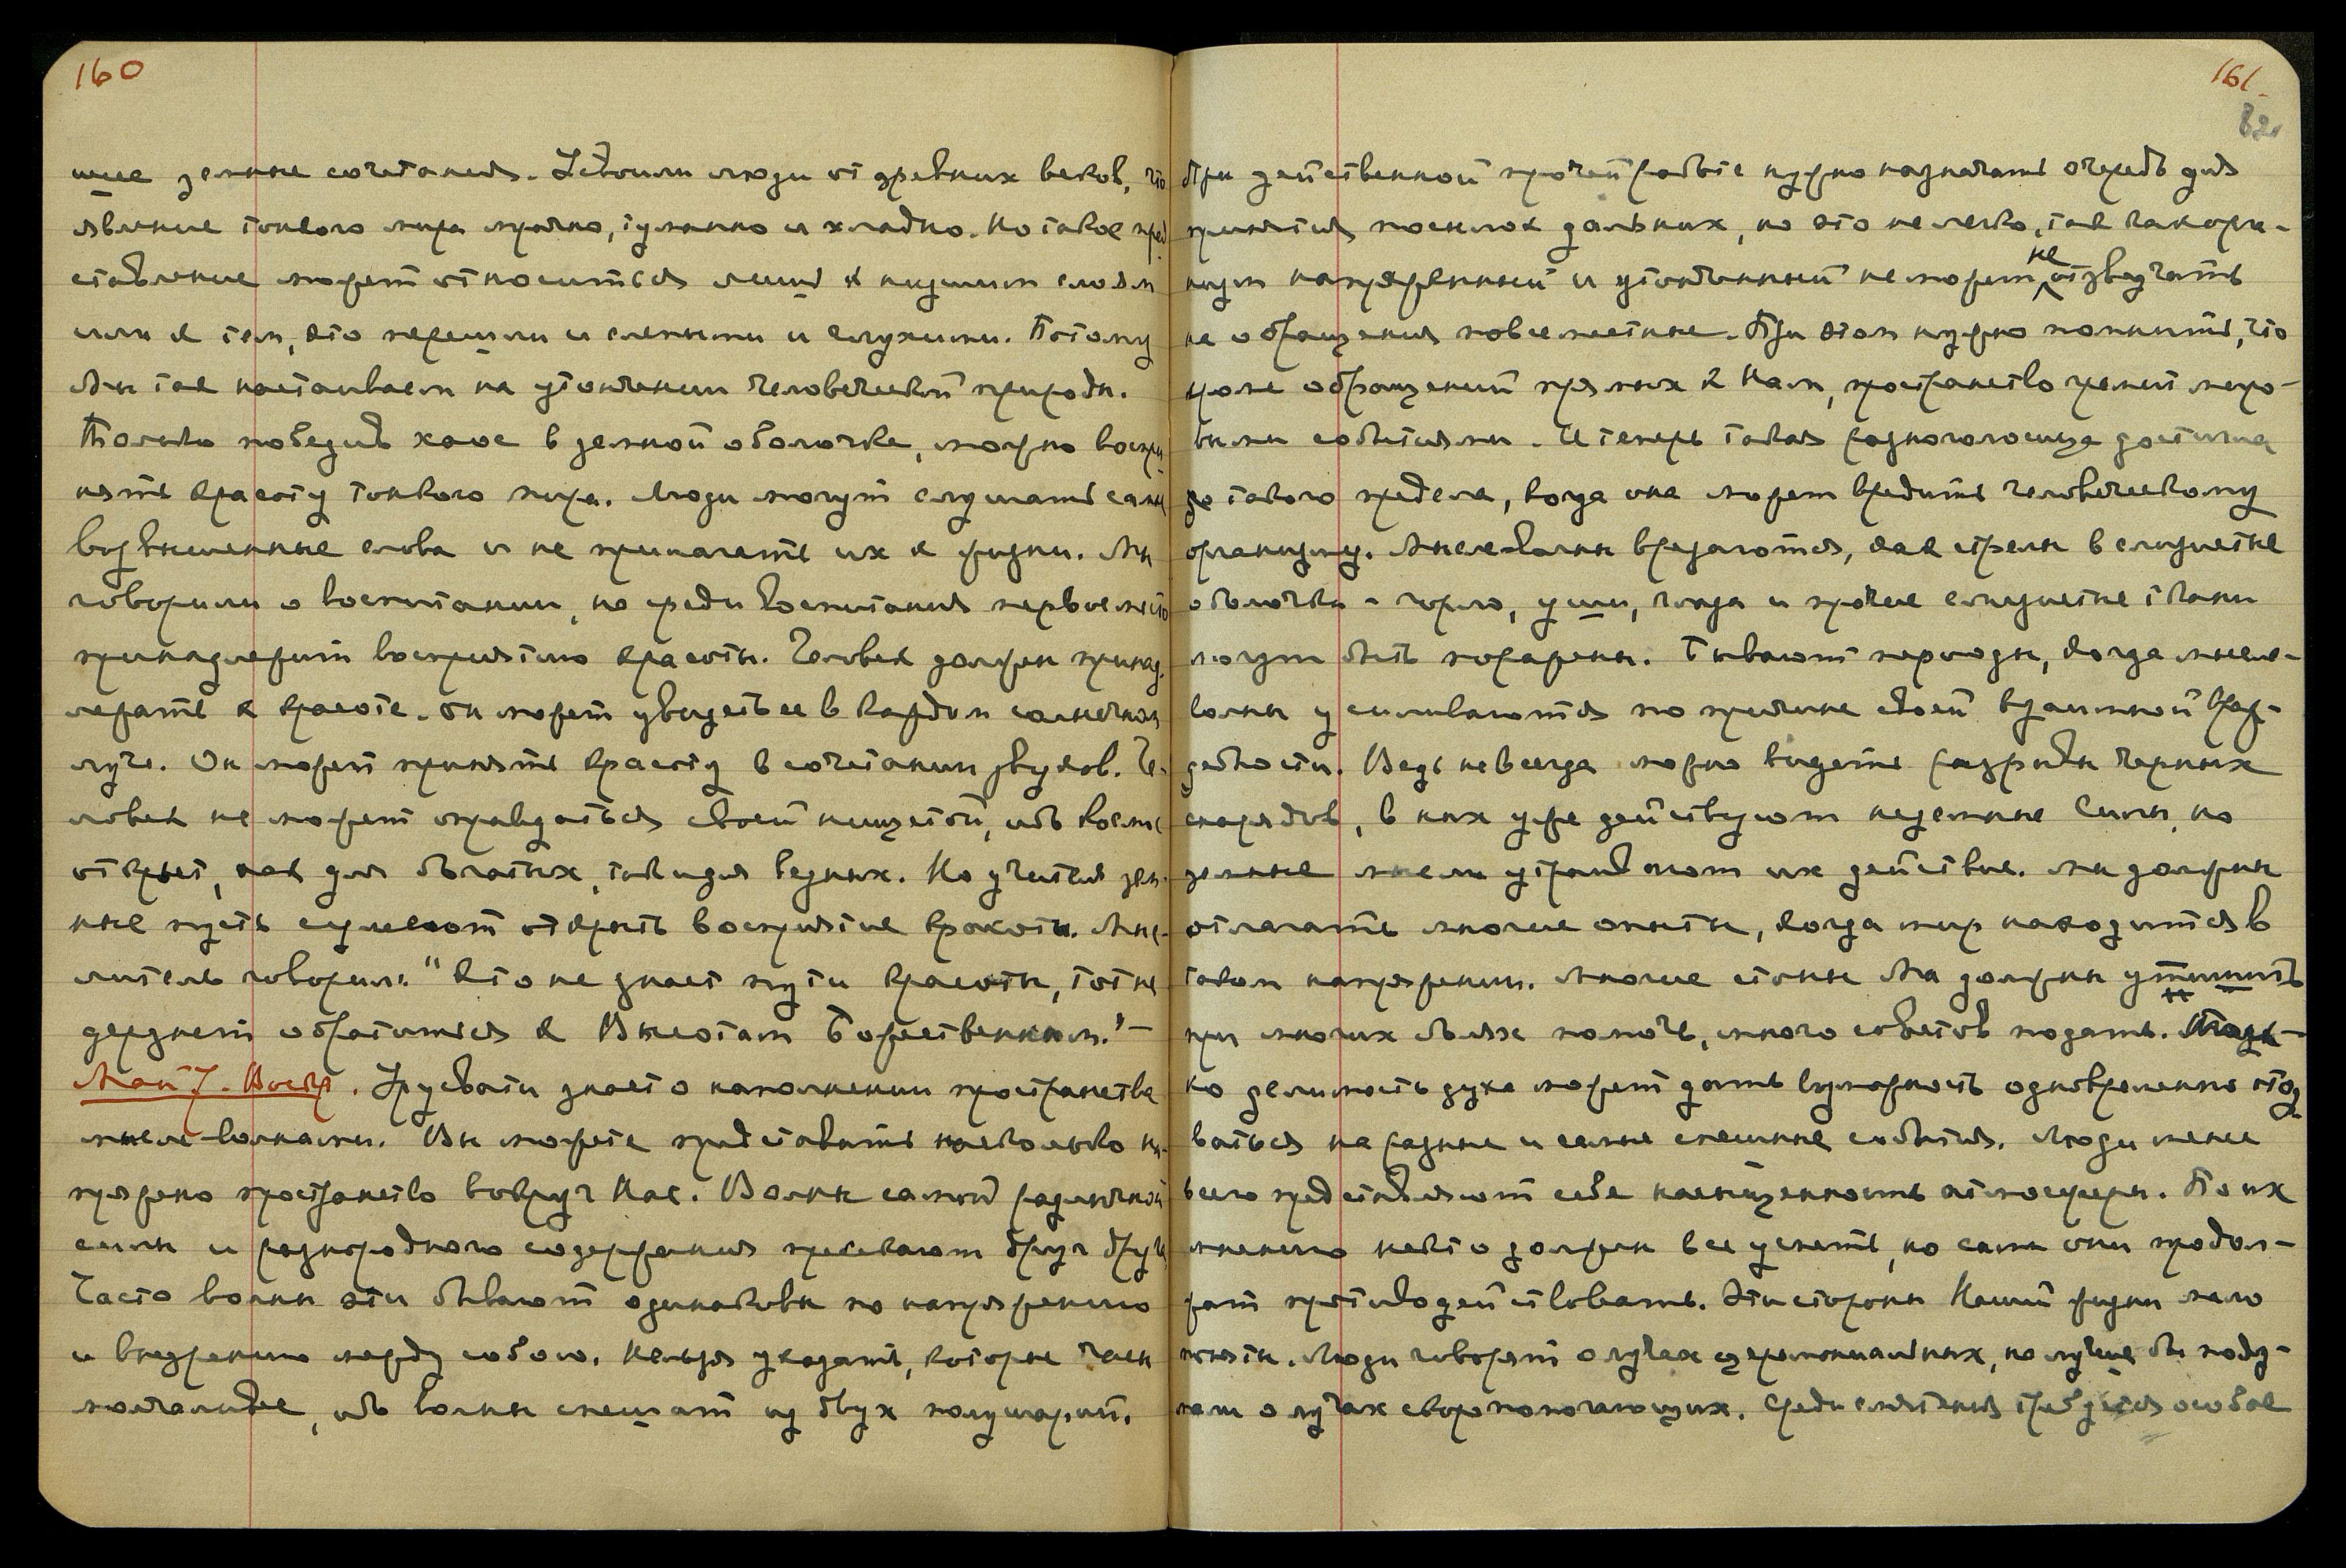 160
шие земные сочетания. Усвоили люди от древних веков, что
явление тонкого мира мрачно, туманно и хладно. Но такое пред
ставление может относиться лишь к низшим слоям
или к тем, кто перешли и слепыми и глухими. Потому
Мы так настаиваем на утончении человеческой природы.
Только победив хаос в земной оболочке, можно воспри
нять красоту тонкого мира. Люди могут слушать самы
возвышенные слова и не прилагать их к жизни. Мы
говорили о воспитании, но среди воспитания первое место
принадлежит восприятию красоты. Человек должен принад
лежать к красоте. Он может увидеть ее в каждом солнечном
луче. Он может принять красоту в сочетании звуков. Че-
ловек не может оправдаться своей нищетой, ибо космос
открыт, как для богатых, так и для бедных. Но учителя зем-
ные пусть сумеют открыть восприятие красоты. Мыс-
литель говорил: "Кто не знает пути красоты, тот не
дерзнет обратиться к Высотам Божественным." —
Май 7. Воскр. Урусвати знает о наполнении пространства
мысле-волнами. Вы можете представить насколько на-
пряжено пространство вокруг Нас. Волны самой различной
силы и разнородного содержания пресекают друг друга
Часто волны эти бывают одинаковы по напряжению
и внедрению между собою. Нельзя указать, которые часы
молчаливее, ибо волны спешат из двух полушарий.
161
82
При действенной прочей работе нужно назначать очередь для
принятия посылок дальних, но это не легко, так как орга-
низм напряженный и утонченный не может не отзвучать
на обращения повсеместные. При этом нужно помнить, что
кроме обращений прямых к Нам, пространство гремит миро-
выми событиями. И теперь такая разноголосица достигла
до такого предела, когда она может вредить человеческому
организму. Мысле-волны врезаются, как стрелы в слизистые
оболочки - горло, уши, глаза и прочие слизистые ткани
могут быть поражены. Бывают периоды, когда мысле-
волны усиливаются по причине своей взаимной враж-
дебности. Ведь не всегда можно видеть разряды черных
снарядов, в них уже действуют неземные Силы, но
земные мысли утраивают их действие. мы должны
отлагать многие опыты, когда мир находится в
таком напряжении. Многие стоны Мы должны утишить
при многих болях помочь, много советов подать. Толь-
ко делимость духа может дать возможность одновременно отоз
ваться на разные и самые спешные события. Люди менее
всего представляют себе насыщенность атмосферы. По их
мнению некто должен все успеть, но сами они продол-
жат противодействовать. Эти стороны Нашей жизни мало
поняты. Люди говорят о лучах церемониальных, но лучше бы поду-
мали о лучах скоропомогающих. Среди смятения требуется особое